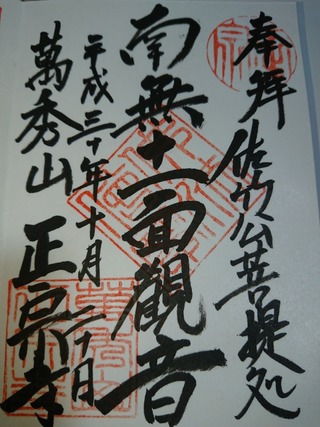 奉拝 佐竹公菩提処
南無十一面觀音
平成三十年十月二十日
萬秀山 正宗寺